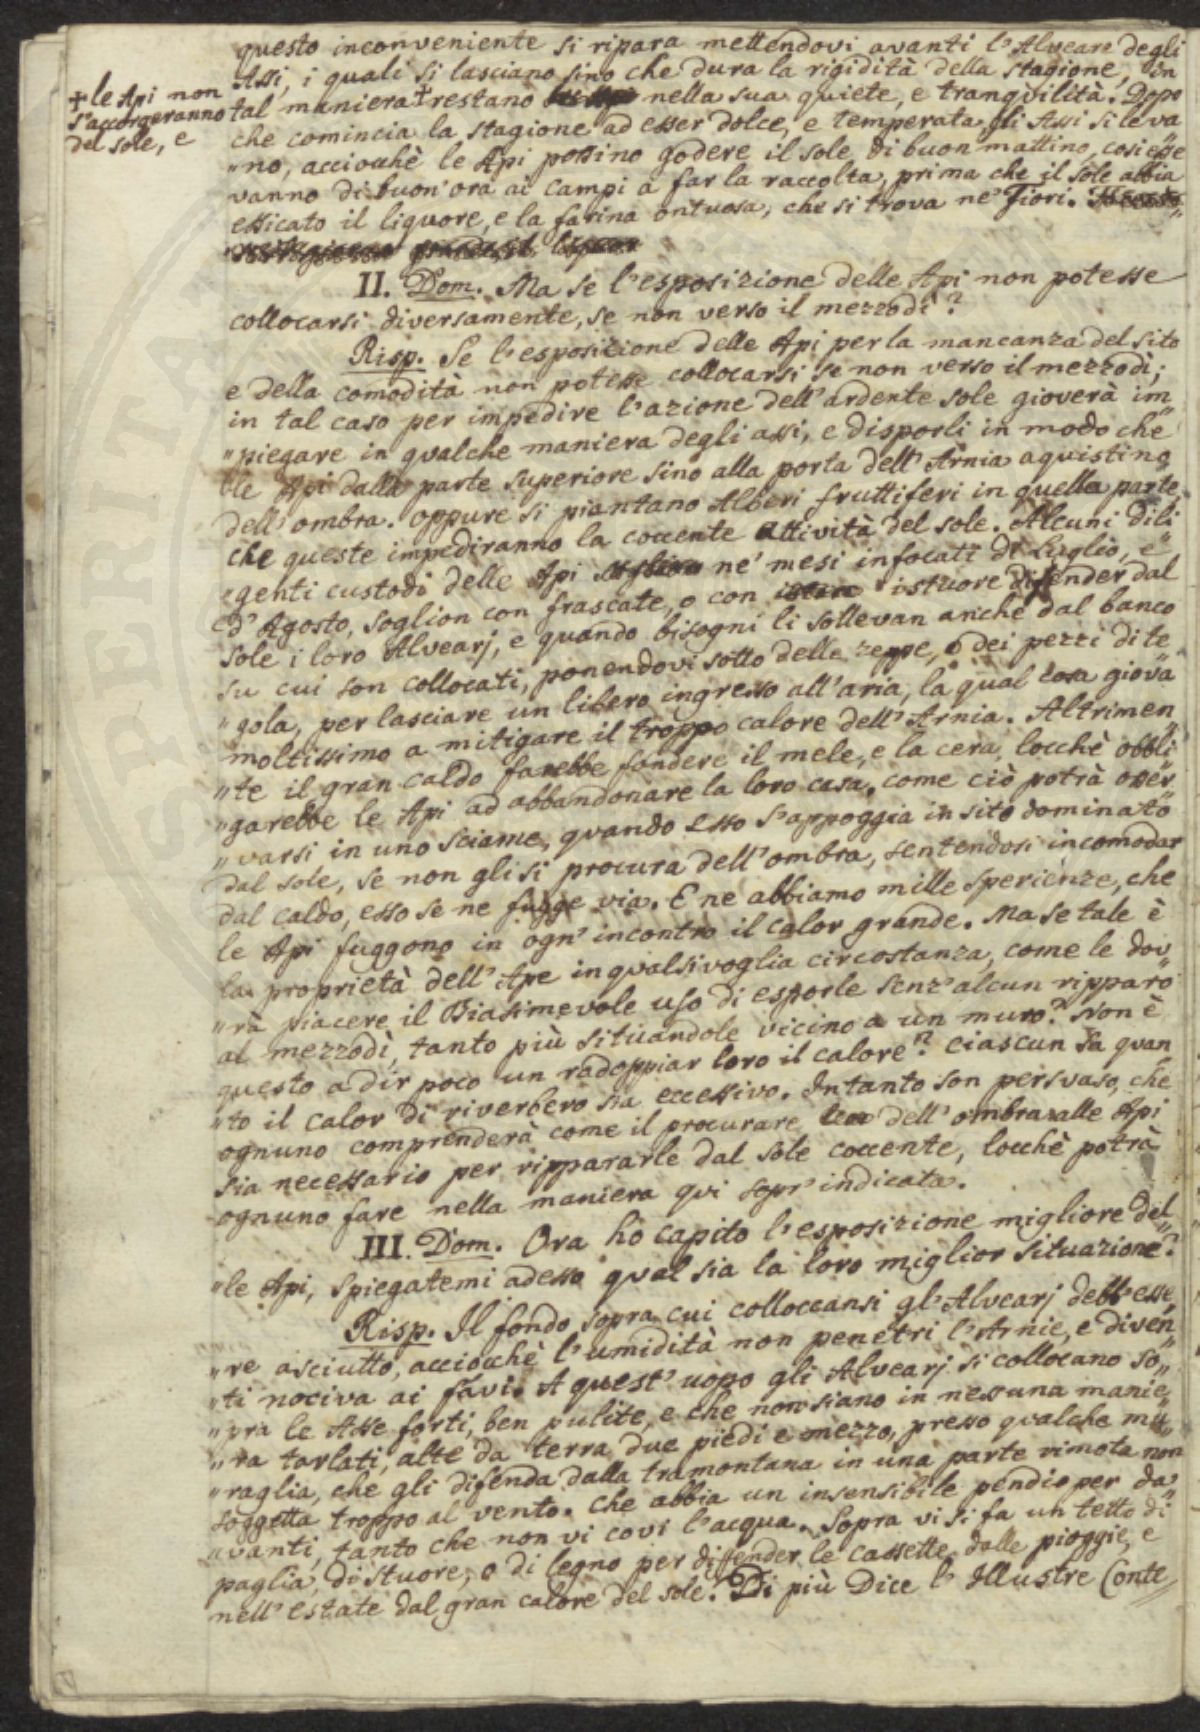 questo inconveniente si ripara mettendovi avanti l'Alveare degli
Assi, i quali si lasciano sino che dura la rigidità della stagione, in
+ le Api non
s'accorgeranno
del sole, e
tal maniera + restano nella sua quiete, e tranquilità. Dopo
che comincia la stagione ad esser dolce, e temperata gli Assi si leva
"no, acciocchè le Api possino godere il sole di buon mattino, così esse
vanno di buon'ora ai campi a far la raccolta, prima che il sole abbia
essicato il liquore, e la farina ontuosa, che si trova ne' Fiori.
II. Dom. Ma se l'esposizione delle Api non potesse
collocarsi diversamente, se non verso il mezzodì?
Risp. Se l'esposizione delle Api per la mancanza del sito
e della comodità non potesse collocarsi se non verso il mezzodì;
in tal caso per impedire l'azione dell'ardente sole gioverà im"
"piegare in qualche maniera degli assi, e disporli in modo che
le Api dalla parte superiore sino alla porta dell'Arnia aquistino
dell'ombra. oppure si piantano Alberi fruttiferi in quella parte,
che queste impediranno la cocente attività del sole. Alcuni dili"
"genti custodi delle Api ne' mesi infocati di Luglio, e
d'Agosto, soglion con frascate, o con istuore difender dal
sole i loro Alvearj, e quando bisogni li sollevan anche dal banco
su cui son collocati, ponendovi sotto delle zeppe, o dei pezzi di te"
"gola, per lasciare un libero ingresso all'aria, la qual cosa giova
moltissimo a mitigare il troppo calore dell'Arnia. Altrimen"
"te il gran caldo farebbe fondere il mele, e la cera, locchè obbli"
"garebbe le Api ad abbandonare la loro casa, come ciò potrà osser"
"varsi in uno sciame, quando esso s'appoggia in sito dominato
dal sole, se non gli si procura dell'ombra, sentendosi incomodar
dal caldo, esso se ne fugge via. E ne abbiamo mille sperienze, che
le Api fuggono in ogn'incontro il calor grande. Ma se tale è
la proprietà dell'Ape in qualsivoglia circostanza, come le dov"
"rà piacere il Biasimevole uso di esporle senz'alcun ripparo
al mezzodì, tanto più situandole vicino a un muro? Non è
questo a dir poco un radoppiar loro il calore? ciascun sa quan"
"to il calor di riverbero sia eccessivo. Intanto son persvaso, che
ognuno comprenderà come il procurare dell'ombra alle Api
sia necessario per rippararle dal sole cocente, locchè potrà
ognuno fare nella maniera qui sopr'indicata.
III. Dom. Ora hò capito l'esposizione migliore del"
"le Api, spiegatemi adesso qual sia la loro miglior situazione?
Risp. Il fondo sopra cui colloccansi gl'Alvearj dell'esse"
"re asciutto, acciocchè l'umidità non penetri l'Arnie, e diven"
"ti nociva ai favi. A quest'uopo gli Alvearj si collocano so"
"pra le Asse forti, ben pulite, e che non siano in nessuna manie"
"ra tarlati, alte da terra due piedi e mezzo, presso qualche mu"
"raglia, che gli difenda dalla tramontana in una parte rimota non
soggetta troppo al vento. che abbia un insensibile pendio per da"
"vanti, tanto che non vi covi l'acqua. Sopra vi si fa un tetto di
paglia, di stuore, o di legno per diffender le cassette dalle pioggie, e
nell'estate dal gran calore del sole. Di più Dice l'Illustre Conte